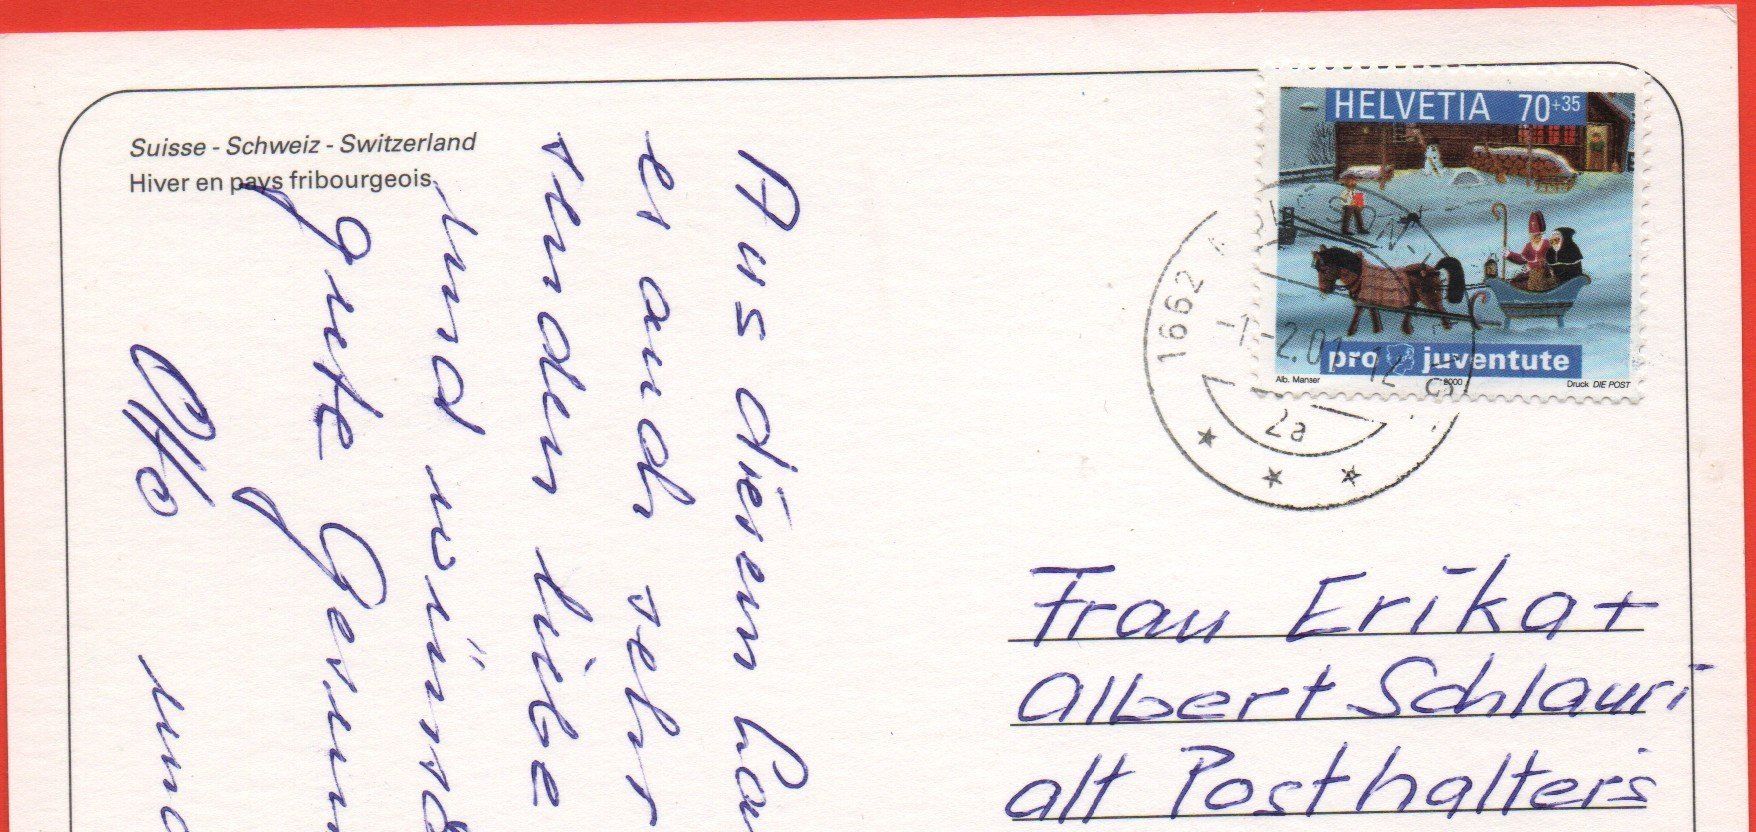 Suisse - Schweiz - Switzerland
Hiver en pays fribourgeois
HELVETIA 70+35
pro juventute
Alb. Manser 2000 Druck DIE POST
1662
-1.-2.01 12
2a
Aus diesem
es auch sehr
senden liebe
und
gute
Otto und
Frau Erika +
Albert Schlauri
alt Posthalters